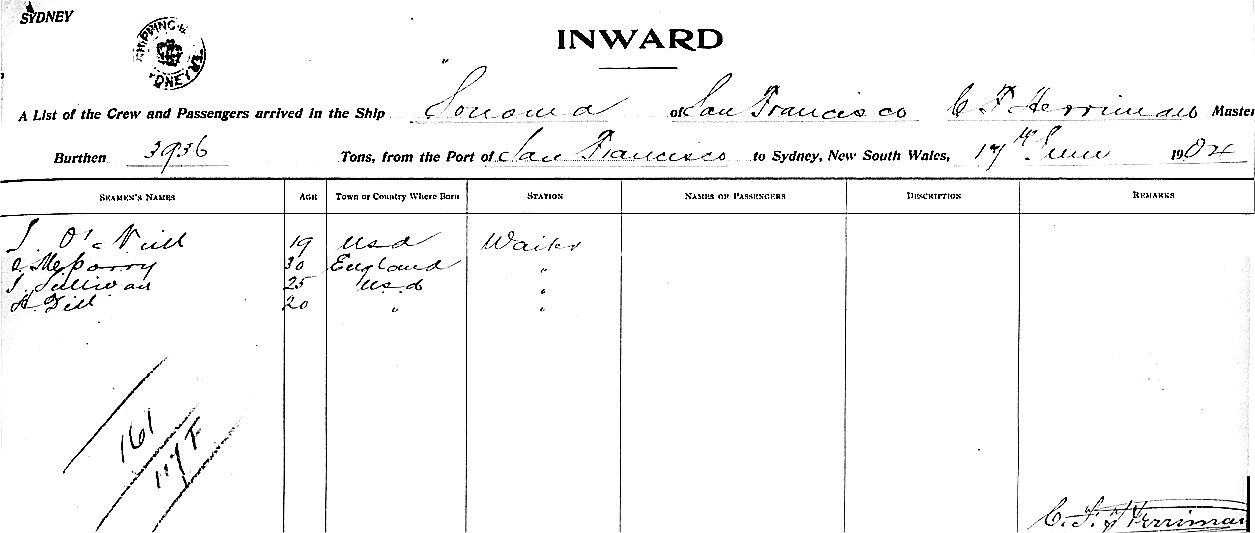 SYDNEY
SHIPPING SYDNEY
INWARD
A List of the Crew and Passengers arrived in the Ship Sonoma of San Francisco C F Herriman Master
Burthen 3936 Tons, from the Port of San Francisco to Sydney, New South Wales, 17th June 1904
SEAMEN'S NAMES AGE Town or Country Where Born STATION NAMES OF PASSENGERS DESCRIPTION REMARKS
O'Neill 19 Usa Waiter
30 England "
Sullivan 25 Usa "
20 " "
161
117 F
C. F. Herriman